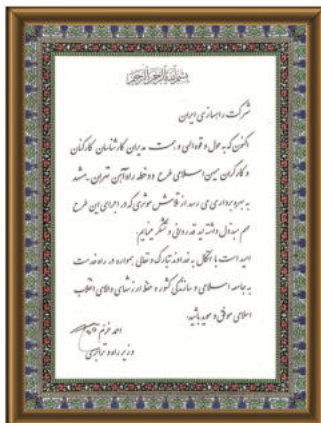 بسم الله الرحمن الرحیم
شرکت راهسازی ایران
اکنون که به حول و قوه الهی و همت مدیران کارشناسان کارکنان
و کارگران میهن اسلامی طرح دو خطه راه آهن تهران - مشهد
به بهره برداری می رسد از تلاش موثری که در اجرای این طرح
مهم مبذول داشته اید قدردانی و تشکر مینمایم.
امید است با اتکال به خداوند تبارک و تعالی همواره در راه خدمت
به جامعه اسلامی و سازندگی کشور و حفظ ارزشهای والای انقلاب
اسلامی موفق و موید باشید.
احمد خرم
وزیر راه و ترابری